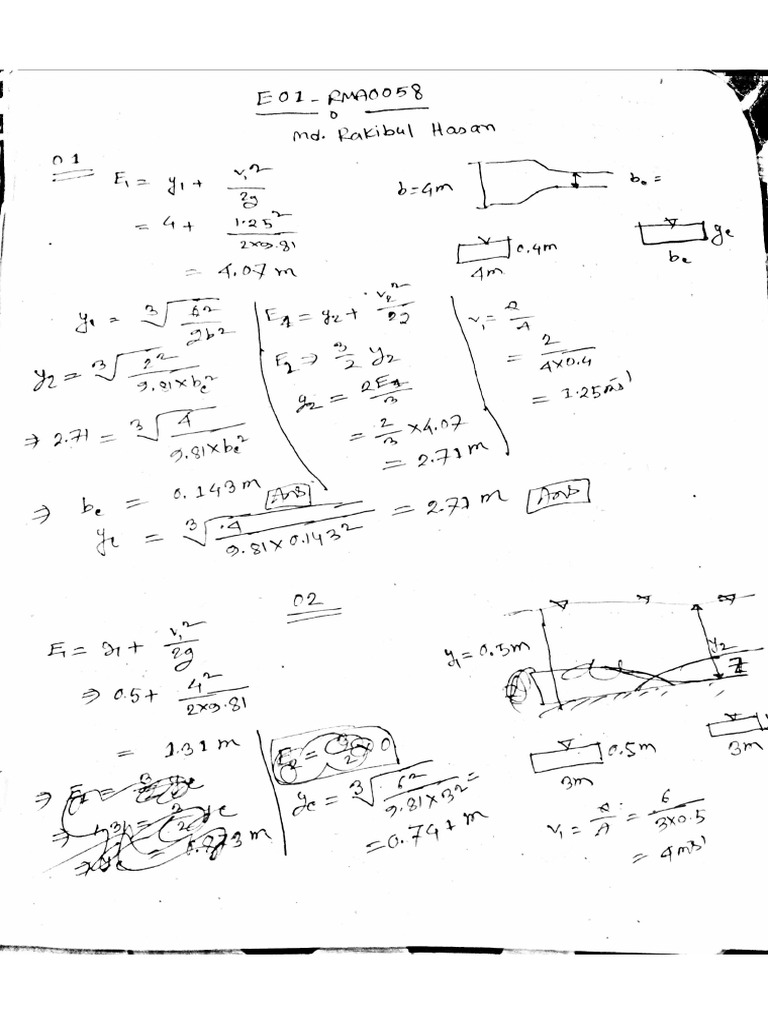 E01-RMA0058
Md. Rakibul Hasan
01
E₁ = y₁ + v₁²/2g
= 4 + 1.25²/2×9.81
= 4.07 m
b = 4m
0.4m
4m
yc
bc
yc = ∛(Q²/gb²)
y₂ = ∛(2²/9.81×bc²)
⇒ 2.71 = ∛(4/9.81×bc²)
⇒ bc = 0.143 m Ans
yc = ∛(4/9.81×0.143²) = 2.71 m Ans
y₂ + v₂²/2g
E₂ ⇒ 3/2 y₂
= 2/3 × 4.07
= 2.71 m
v₁ = Q/A
= 2/4×0.4
= 1.25 ms⁻¹
02
E₁ = y₁ + v₁²/2g
⇒ 0.5 + 4²/2×9.81
= 1.31 m
yc = ∛(6²/9.81×3²) =
= 0.741 m
y₁ = 0.5m
y₂
Z
0.5m
3m
3m
v₁ = Q/A = 6/3×0.5
= 4 ms⁻¹